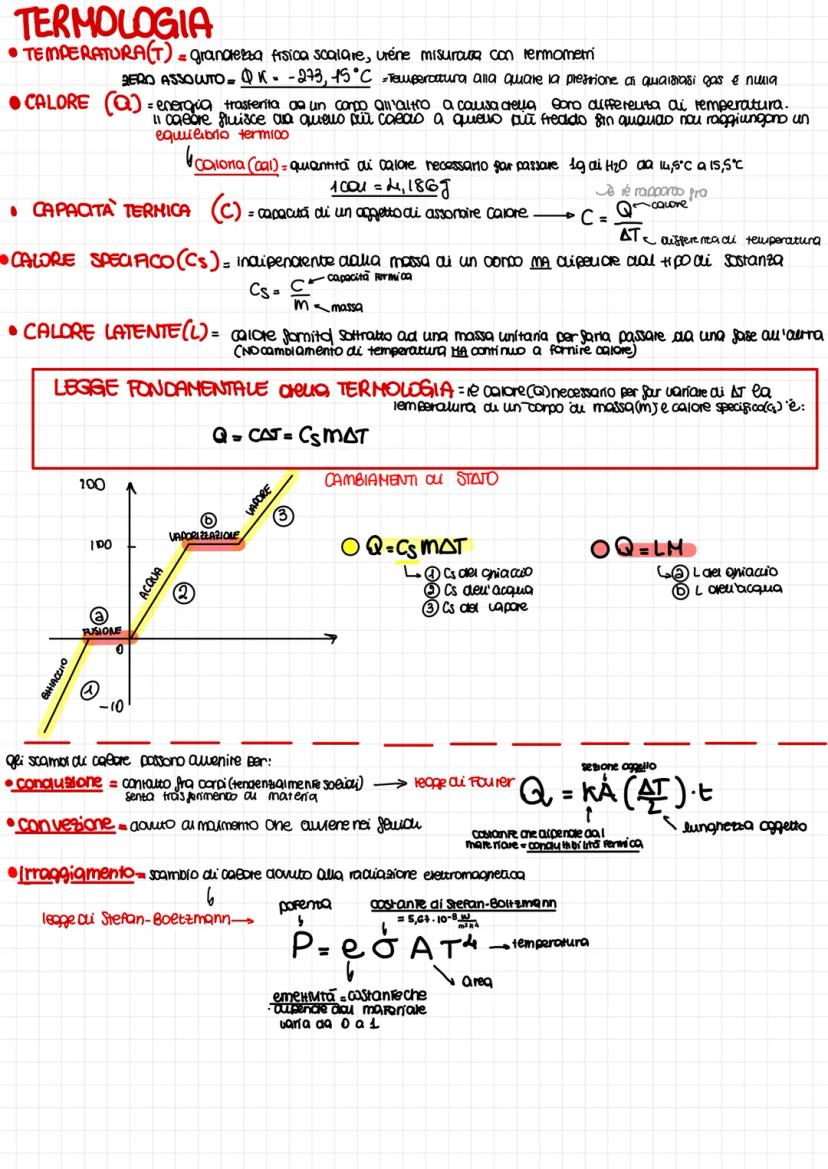 TERMOLOGIA
• TEMPERATURA (T) = grandezza fisica scalare, viene misurata con termometri
ZERO ASSOLUTO = 0 K = -273,15°C = Temperatura alla quale la pressione di qualsiasi gas è nulla
• CALORE (Q) = energia trasferita da un corpo all'altro a causa della loro differenza di temperatura.
il calore fluisce da quello più caldo a quello più freddo fin quando non raggiungono un
equilibrio termico
Caloria (cal) = quantità di calore necessario far passare 1g di H2O da 14,5°C a 15,5°C
1 cal = 4,186 J
• CAPACITÀ TERMICA (C) = capacità di un oggetto di assorbire calore → C = Q/ΔT
è il rapporto fra
calore
differenza di temperatura
• CALORE SPECIFICO (Cs) = indipendente dalla massa di un corpo MA dipende dal tipo di sostanza
Cs = C/m
capacità termica
massa
• CALORE LATENTE (L) = calore fornito/ sottratto ad una massa unitaria per farla passare da una fase all'altra
(NO cambiamento di temperatura MA continuo a fornire calore)
LEGGE FONDAMENTALE della TERMOLOGIA = il calore (Q) necessario per far variare di ΔT la
temperatura di un corpo di massa (m) e calore specifico (cs) è:
Q = CΔT = Cs mΔT
CAMBIAMENTI di STATO
100
100
0
-10
GHIACCIO
1
FUSIONE
a
ACQUA
2
VAPORIZZAZIONE
b
VAPORE
3
Q = Cs mΔT
① Cs del ghiaccio
② Cs dell'acqua
③ Cs del vapore
Q = LM
ⓐ L del ghiaccio
ⓑ L dell'acqua
gli scambi di calore possono avvenire per:
• conduzione = contatto fra corpi (tendenzialmente solidi) → legge di Fourer
senza trasferimento di materia
Q = kA (ΔT/L) · t
sezione oggetto
costante che dipende dal
materiale = conducibilità termica
lunghezza oggetto
• convezione = dovuto al movimento che avviene nei fluidi
• Irraggiamento = scambio di calore dovuto alla radiazione elettromagnetica
legge di Stefan-Boltzmann →
potenza
costante di Stefan-Boltzmann
= 5,67·10⁻⁸ W/m²K⁴
P = e σ A T⁴ → temperatura
area
emettività = costante che
dipende dal materiale
varia da 0 a 1